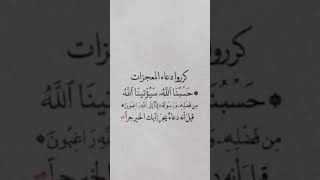 كرروا دعاء المعجزات
﴿حَسْبُنَا ٱللَّهُ سَيُؤْتِينَا ٱللَّهُ
مِن فَضْلِهِۦ وَرَسُولُهُۥٓ إِنَّآ إِلَى ٱللَّهِ رَٰغِبُونَ﴾
قيل أنه دعاءٌ يجرّ إليك الخير جراً